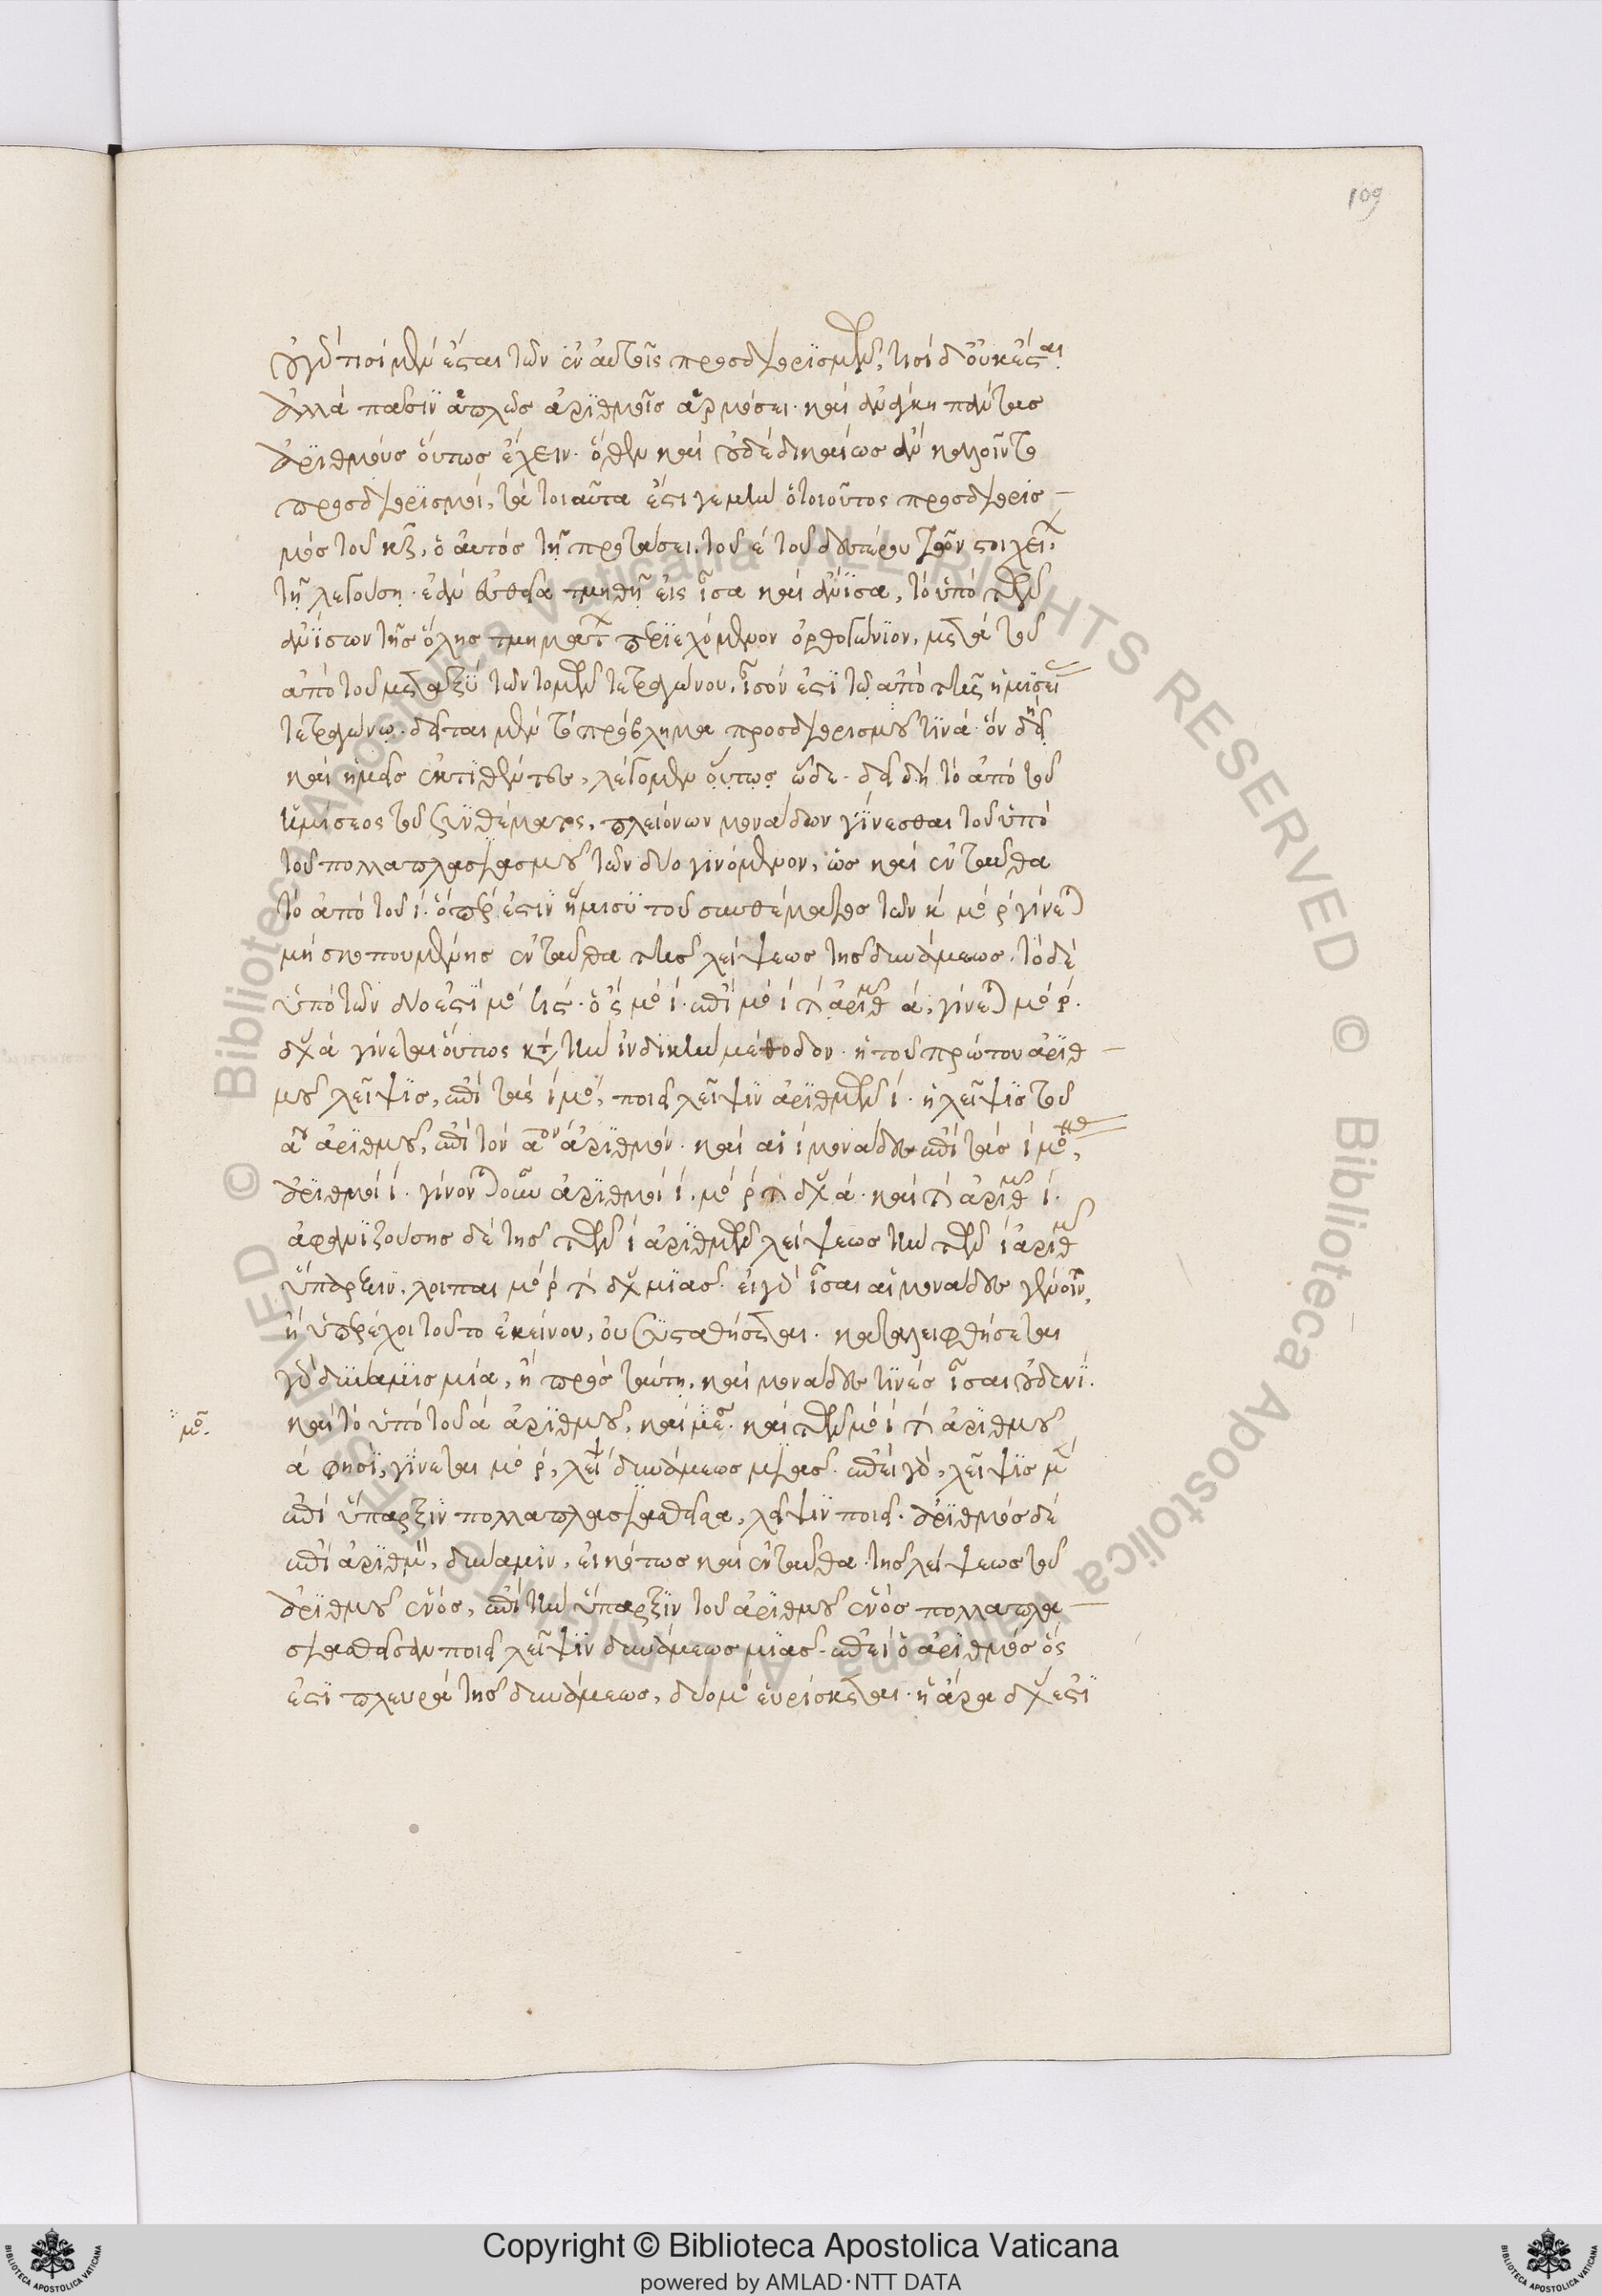 109
οὐ γάρ τισὶ μὲν ἔσται τῶν ἐν αὐτοῖς προσδιορισμῶν, τισὶ δ' οὐκ ἔσται.
ἀλλὰ πᾶσιν ἁπλῶς ἀριθμοῖς ἁρμόσει. καὶ ἀνάγκη πάντας
ἀριθμοὺς οὕτως ἔχειν. ὅθεν καὶ οὐδὲ δικαίως ἂν καλοῖντο
προσδιορισμοί, τὰ τοιαῦτα ἔστι γε μὴν ὁ τοιοῦτος προσδιορισ-
μὸς τοῦ κζ, ὁ αὐτὸς τῇ προτάσει τοῦ ε τοῦ δευτέρου τῶν στοιχείων
τῇ λεγούσῃ. ἐὰν εὐθεῖα τμηθῇ εἰς ἴσα καὶ ἄνισα, τὸ ὑπὸ τῶν
ἀνίσων τῆς ὅλης τμημάτων περιεχόμενον ὀρθογώνιον, μετὰ τοῦ
ἀπὸ τοῦ μεταξὺ τῶν τομῶν τετραγώνου, ἴσον ἐστὶ τῷ ἀπὸ τῆς ἡμισείας
τετραγώνῳ. δεῖται μὲν τὸ πρόβλημα προσδιορισμοῦ τινά. ὃν δεῖ
καὶ ἡμᾶς ἐκτιθέντες, λέγομεν οὕτως ὧδε. δεῖ δὴ τὸ ἀπὸ τοῦ
ἡμίσεος τοῦ συνθέματος, πλειόνων μονάδων γίνεσθαι τοῦ ὑπὸ
τοῦ πολλαπλασιασμοῦ τῶν δύο γινόμενον, ὡς καὶ ἐνταῦθα
τὸ ἀπὸ τοῦ ί. ὅπερ ἐστὶν ἥμισυ τοῦ συνθέματος τῶν κ μο ρ γίνεται
μὴ σκοπουμένης ἐνταῦθα τῆς λείψεως τῆς δυνάμεως. τὸ δὲ
ὑπὸ τῶν δύο ἐστὶ μο
γίνεται μο ρ.
γίνεται οὕτως κατὰ τὴν ἰνδικὴν μέθοδον. ἡ τοῦ πρώτου ἀριθ-
μοῦ λεῖψις, ἐπὶ τὰς ί μο, ποιεῖ λεῖψιν ἀριθμῶν ί. ἡ λεῖψις τοῦ
αου ἀριθμοῦ, ἐπὶ τὸν αον ἀριθμόν. καὶ αἱ ί μονάδες ἐπὶ τὰς ί μο,
ἀριθμοὶ ί. γίνονται οὖν ἀριθμοὶ ί. μο ρ
ἀφανιζούσης δὲ τῆς τῶν ί ἀριθμῶν λείψεως τὴν τῶν ί ἀριθμῶν
ὕπαρξιν. λοιπαὶ μο ρ
μιᾶς. εἰ γὰρ ἴσαι αἱ μονάδες γένοιντο,
ἢ ὑπερέχοι τοῦτο ἐκείνου, οὐ συσταθήσεται. καταλειφθήσεται
γὰρ δύναμις μία, ἢ πρὸς ταύτῃ, καὶ μονάδες τινὲς ἴσαι οὐδενί.
μο.
καὶ τὸ ὑπὸ τοῦ ά ἀριθμοῦ, καὶ
καὶ τῶν μο ί
ἀριθμοῦ
ά φησὶ, γίνεται μο ρ, λείψει δυνάμεως μιᾶς. ἐπεὶ γὰρ, λεῖψις
ἐπὶ ὕπαρξιν πολλαπλασιασθεῖσα, λεῖψιν ποιεῖ. ἀριθμὸς δὲ
ἐπὶ ἀριθμὸν, δύναμιν, εἰκότως καὶ ἐνταῦθα τῆς λείψεως τοῦ
ἀριθμοῦ ἑνός, ἐπὶ τὴν ὕπαρξιν τοῦ ἀριθμοῦ ἑνὸς πολλαπλα-
σιασθεῖσαν ποιεῖ λεῖψιν δυνάμεως μιᾶς. ἐπεὶ ὁ ἀριθμὸς ὅς
ἐστι πλευρὰ τῆς δυνάμεως, δύο μο εὑρίσκεται. ἡ ἄρα δυ ἐστὶ
Copyright © Biblioteca Apostolica Vaticana
powered by AMLAD·NTT DATA